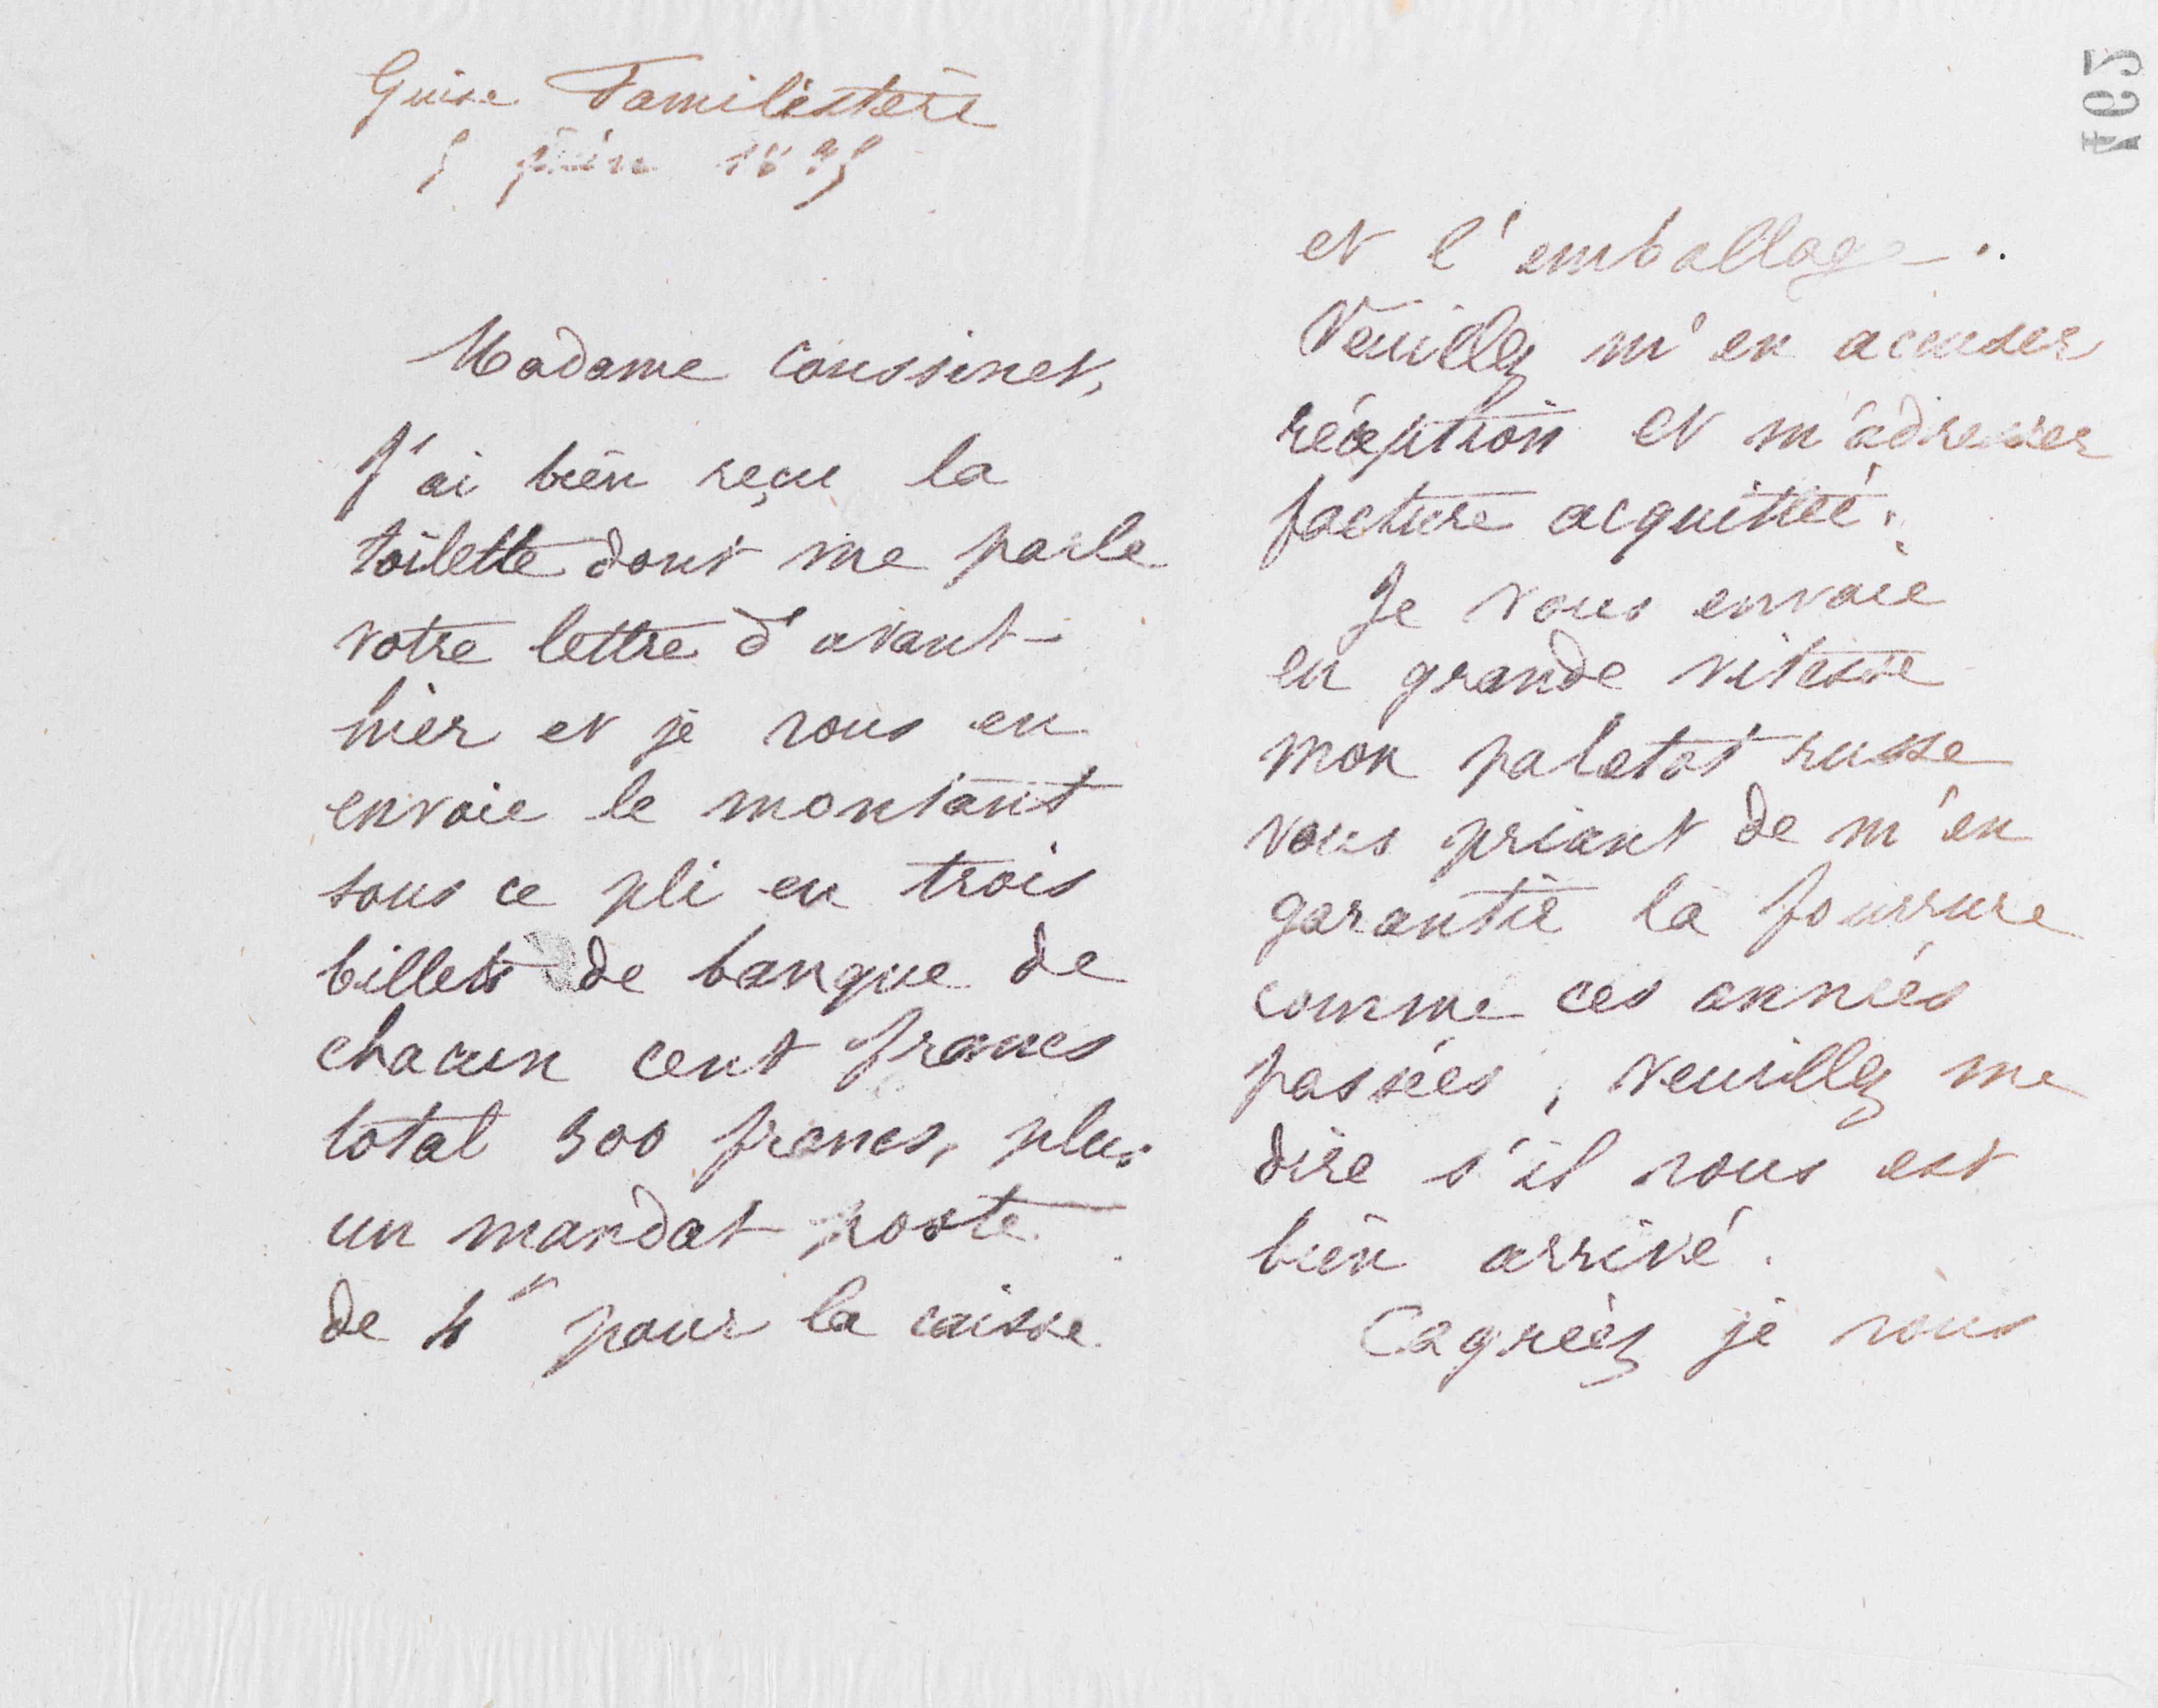 Guise Familistère
5 juin 1895
Madame Coussinet,
J'ai bien reçu la
toilette dont me parle
votre lettre d'avant-
hier et je vous en
envoie le montant
sous ce pli en trois
billets de banque de
chacun cent francs
total 300 francs, plus
un mandat poste
de 4f pour la caisse
et l'emballage.
Veuillez m'en accuser
réception et m'adresser
facture acquittée.
Je vous envoie
en grande vitesse
mon paletot russe
vous priant de m'en
garantir la fourrure
comme ces années
passées, veuillez me
dire s'il vous est
bien arrivé.
agréez je vous